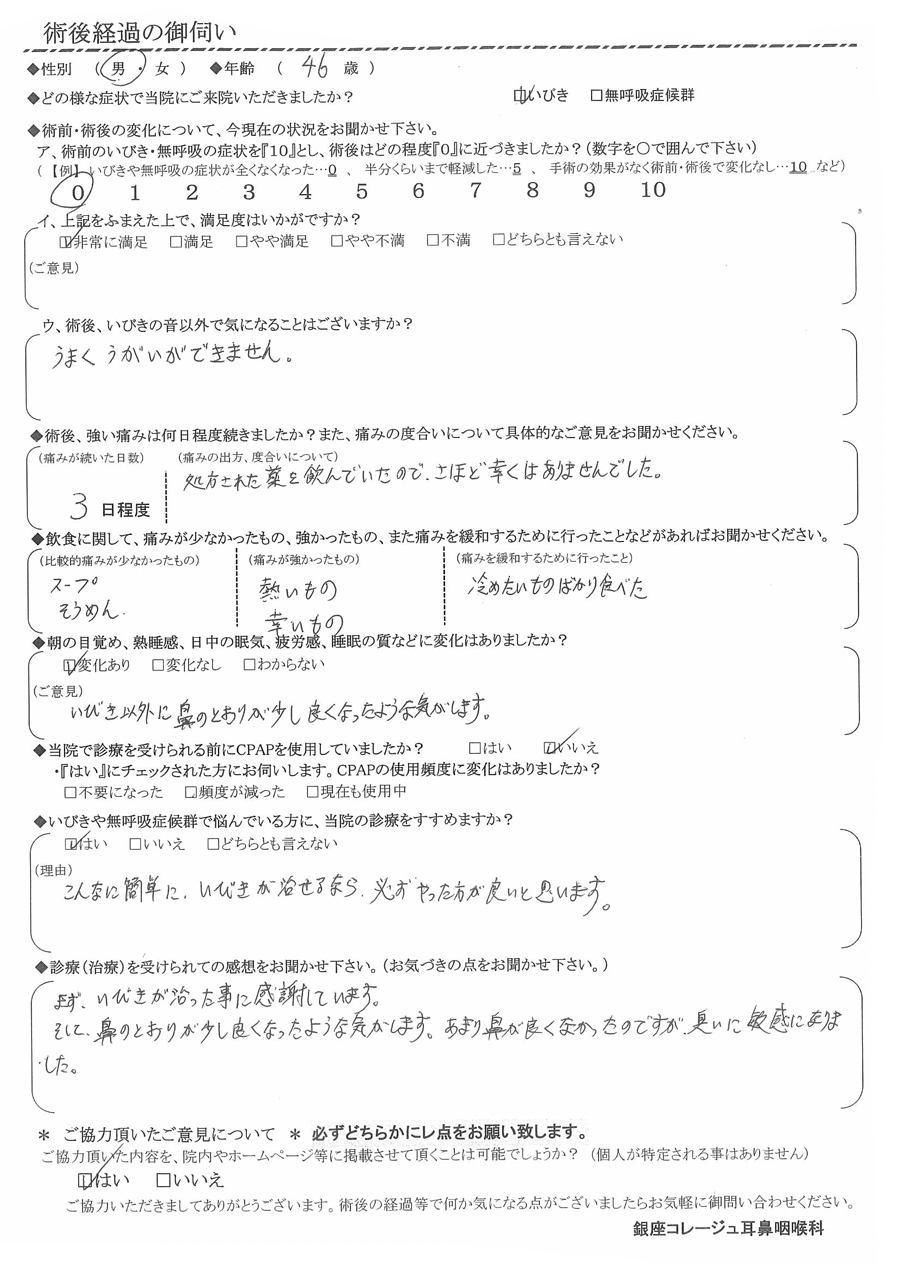 術後経過の御伺い
◆性別 ( 男 ・ 女 ) ◆年齢 ( 46 歳 )
◆どの様な症状で当院にご来院いただきましたか? ☑いびき □無呼吸症候群
◆術前・術後の変化について、今現在の状況をお聞かせ下さい。
ア、術前のいびき・無呼吸の症状を『10』とし、術後はどの程度『0』に近づきましたか?(数字を○で囲んで下さい)
(【例】いびきや無呼吸の症状が全くなくなった…0 、 半分くらいまで軽減した…5 、 手術の効果がなく術前・術後で変化なし…10 など)
0 1 2 3 4 5 6 7 8 9 10
イ、上記をふまえた上で、満足度はいかがですか?
☑非常に満足 □満足 □やや満足 □やや不満 □不満 □どちらとも言えない
(ご意見)
ウ、術後、いびきの音以外で気になることはございますか?
うまくうがいができません。
◆術後、強い痛みは何日程度続きましたか?また、痛みの度合いについて具体的なご意見をお聞かせください。
(痛みが続いた日数) (痛みの出方、度合いについて)
処方された薬を飲んでいたので、さほど辛くはありませんでした。
3 日程度
◆飲食に関して、痛みが少なかったもの、強かったもの、また痛みを緩和するために行ったことなどがあればお聞かせください。
(比較的痛みが少なかったもの) (痛みが強かったもの) (痛みを緩和するために行ったこと)
スープ 熱いもの 冷めたいものばかり食べた
そうめん. 辛いもの
◆朝の目覚め、熟睡感、日中の眠気、疲労感、睡眠の質などに変化はありましたか?
☑変化あり □変化なし □わからない
(ご意見)
いびき以外に鼻のとおりが少し良くなったような気がします。
◆当院で診療を受けられる前にCPAPを使用していましたか? □はい ☑いいえ
・『はい』にチェックされた方にお伺いします。CPAPの使用頻度に変化はありましたか?
□不要になった □頻度が減った □現在も使用中
◆いびきや無呼吸症候群で悩んでいる方に、当院の診療をすすめますか?
☑はい □いいえ □どちらとも言えない
(理由)
こんなに簡単に、いびきが治せるなら、必ずやった方が良いと思います。
◆診療(治療)を受けられての感想をお聞かせ下さい。(お気づきの点をお聞かせ下さい。)
まず、いびきが治った事に感謝しています。
そして、鼻のとおりが少し良くなったような気がします。あまり鼻が良くなかったのですが、臭いに敏感になりま
した。
* ご協力頂いたご意見について * 必ずどちらかにレ点をお願い致します。
ご協力頂いた内容を、院内やホームページ等に掲載させて頂くことは可能でしょうか? (個人が特定される事はありません)
☑はい □いいえ
ご協力いただきましてありがとうございます。術後の経過等で何か気になる点がございましたらお気軽に御問い合わせください。
銀座コレージュ耳鼻咽喉科